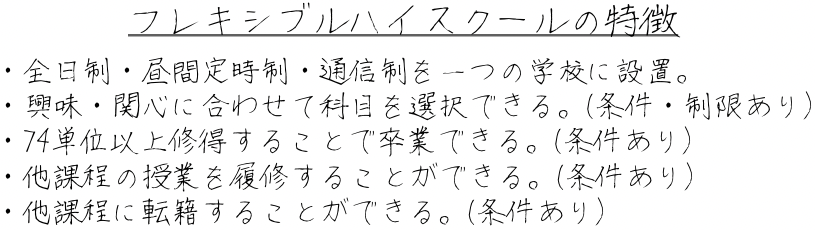 フレキシブルハイスクールの特徴
・全日制・昼間定時制・通信制を一つの学校に設置。
・興味・関心に合わせて科目を選択できる。(条件・制限あり)
・74単位以上修得することで卒業できる。(条件あり)
・他課程の授業を履修することができる。(条件あり)
・他課程に転籍することができる。(条件あり)